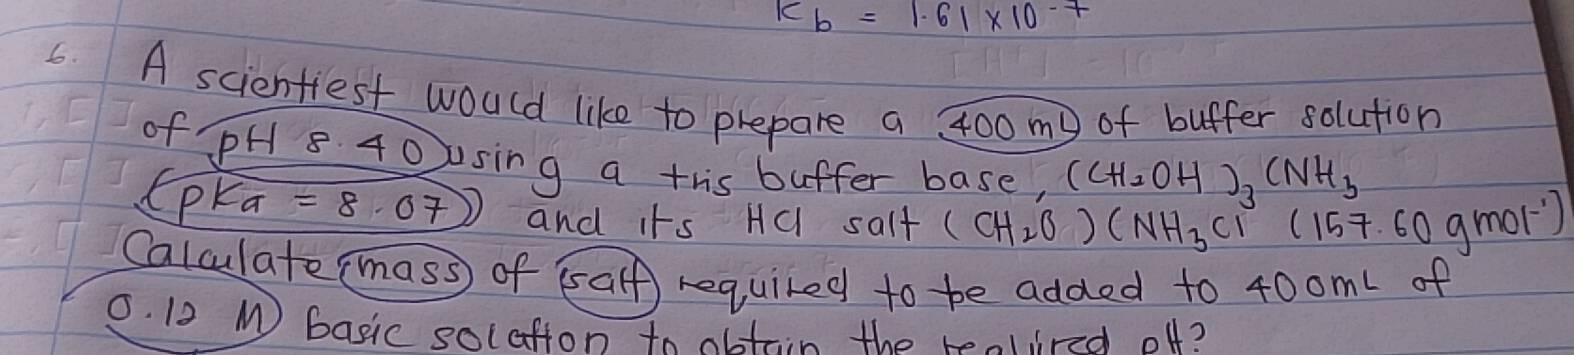 Kb = 1.61 × 10⁻⁷
6. A scientiest would like to prepare a 400 mL of buffer solution
of pH 8.40 using a tris buffer base, (CH₂OH)₃ CNH₃
(pKa = 8.07) and its HCl salt (CH₂O)CNH₃Cl (157.60 gmol⁻¹)
Calculate mass of salt required to be added to 400mL of
0.12 M basic solution to obtain the required pH?